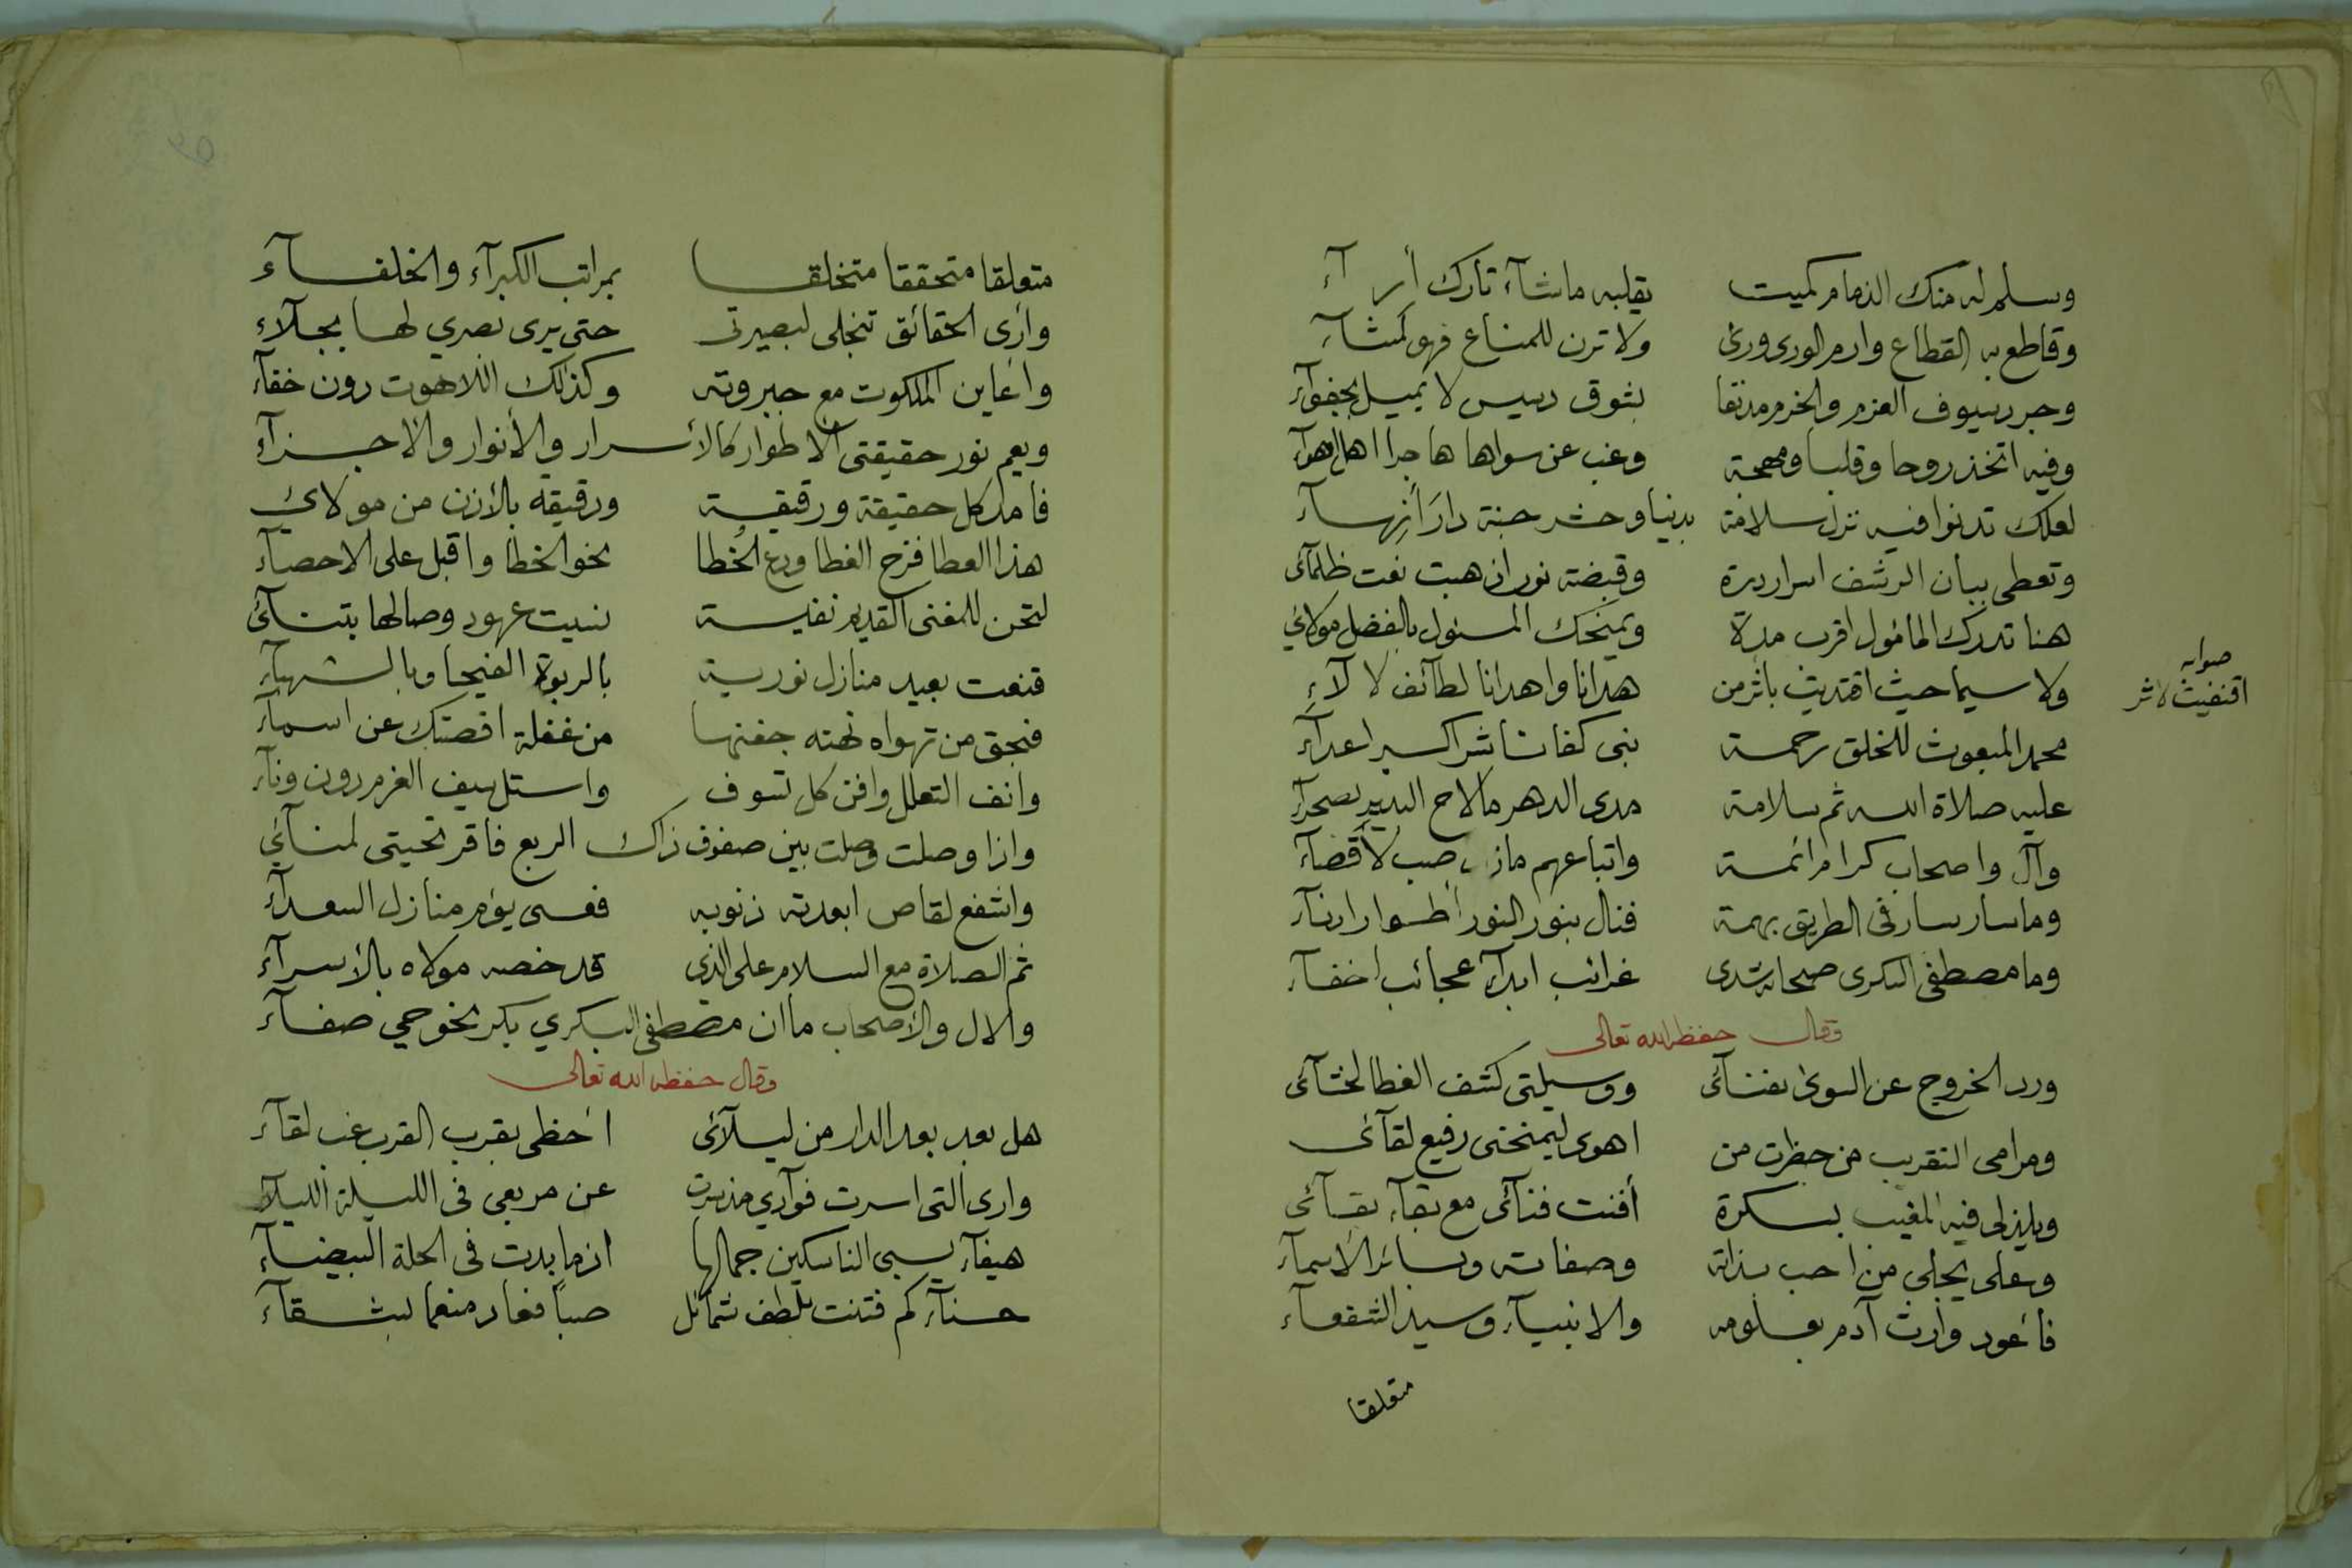 وسلم له منك الذمام كميت يقلبه ماشآء تارك أرآء
وقاطع به القطاع وارم الورى ورى ولا ترن للمناع فهو كمشآء
وجرد سيوف العزم والحزم مدنفا بثوق دسيس لا يميل بجفوآء
وفيه اتخذ روحا وقلبا ومهجة وغب عن سواها هاجرا اهل اهوآء
لعلك تدنوا فيه نزل سلامة بدنيا وحشر جنة دار أنهسآء
وتعطى بيان الرشف اسرار درة وقبضة نور ان هبت نفت ظلمآئى
هنا تدرك المامول اقرب مدة ويمنحك المسئول بالفضل مولاي
ولا سيما حيث اقتديت باثر من هدانا واهدانا لطآئف لالآء
صوابه
اقتفيت لاثر
محمد المبعوث للخلق رحمة نبى كفانا شر اكسير اعدآء
عليه صلاة الله ثم سلامة مدى الدهر مالاح البدير بصحرآء
وآل واصحاب كرام ائمة واتباعهم صب لأقصآء
وما سار سار فى الطريق بهمة فنال بنور النور أطوار ادنآء
وما مصطفى البكرى صحا شدى غرائب ابدآء عجائب اخفآء
وقال حفظه الله تعالى
ورد الخروج عن السوى بفنآئى ووسيلتى كشف الغطا لحشآئى
ومرامى التقريب من حظرت من اهوى ليمنحنى رفيع لقآئى
ويلذ لى فيه المغيب بسكرة أفنت فنآئى مع بقآء بقآئى
وعلى يجلى من احب بذاته وصفاته وبسائر الاسمآء
فأعود وارث آدم بعلومه والانبيآء وسيد الشفعآء
متعلقا
متعلقا متحققا متخلقا بمراتب الكبرآء والخلفآء
وأرى الحقائق تنجلى لبصيرتى حتى يرى بصري لها بجلآء
وأعاين الملكوت مع جبروته وكذلك اللاهوت دون خفآء
ويعم نور حقيقتى الاطوار كالأسرار والأنوار والاجزآء
فأمد كل حقيقة ورقيقة ورقيقه بالأذن من مولاي
هذا العطا فزح الغطا ودع الخطا نحو الخطا واقبل على الاحصآء
لتحن للمغنى القديم نفيسة نسيت عهود وصالها بتنآئى
قنعت بعيد منازل نورية بالربوة الفيحا وبالشهبآء
فبحق من تهواه نهته جفنها من غفلة اقصتك عن اسمآء
وانف التعلل وافن كل تسوف واستل سيف العزم دون ونآء
واذا وصلت وصلت بين صفوف ذاك الربع فاقر تحيتى لمنآئي
واشفع لقاص ابعدته ذنوبه فعسى يؤم منازل السعدآء
ثم الصلاة مع السلام على الذي قد خصه مولاه بالأسرآء
والال والأصحاب ماان مصطفى البكري بكر نحو حي صفآء
وقال حفظه الله تعالى
هل بعد بعد الدار من ليلآئى احظى بقرب القرب غب لقآء
وارى التى اسرت فوآدي مذ سرت عن مربعى فى الليلة الليلآء
هيفآء يسبى الناسكين جمالها اذ ما بدت فى الحلة البيضآء
حسنآء كم فتنت بلطف شمآئل صبا فعاد منعما بشقآء